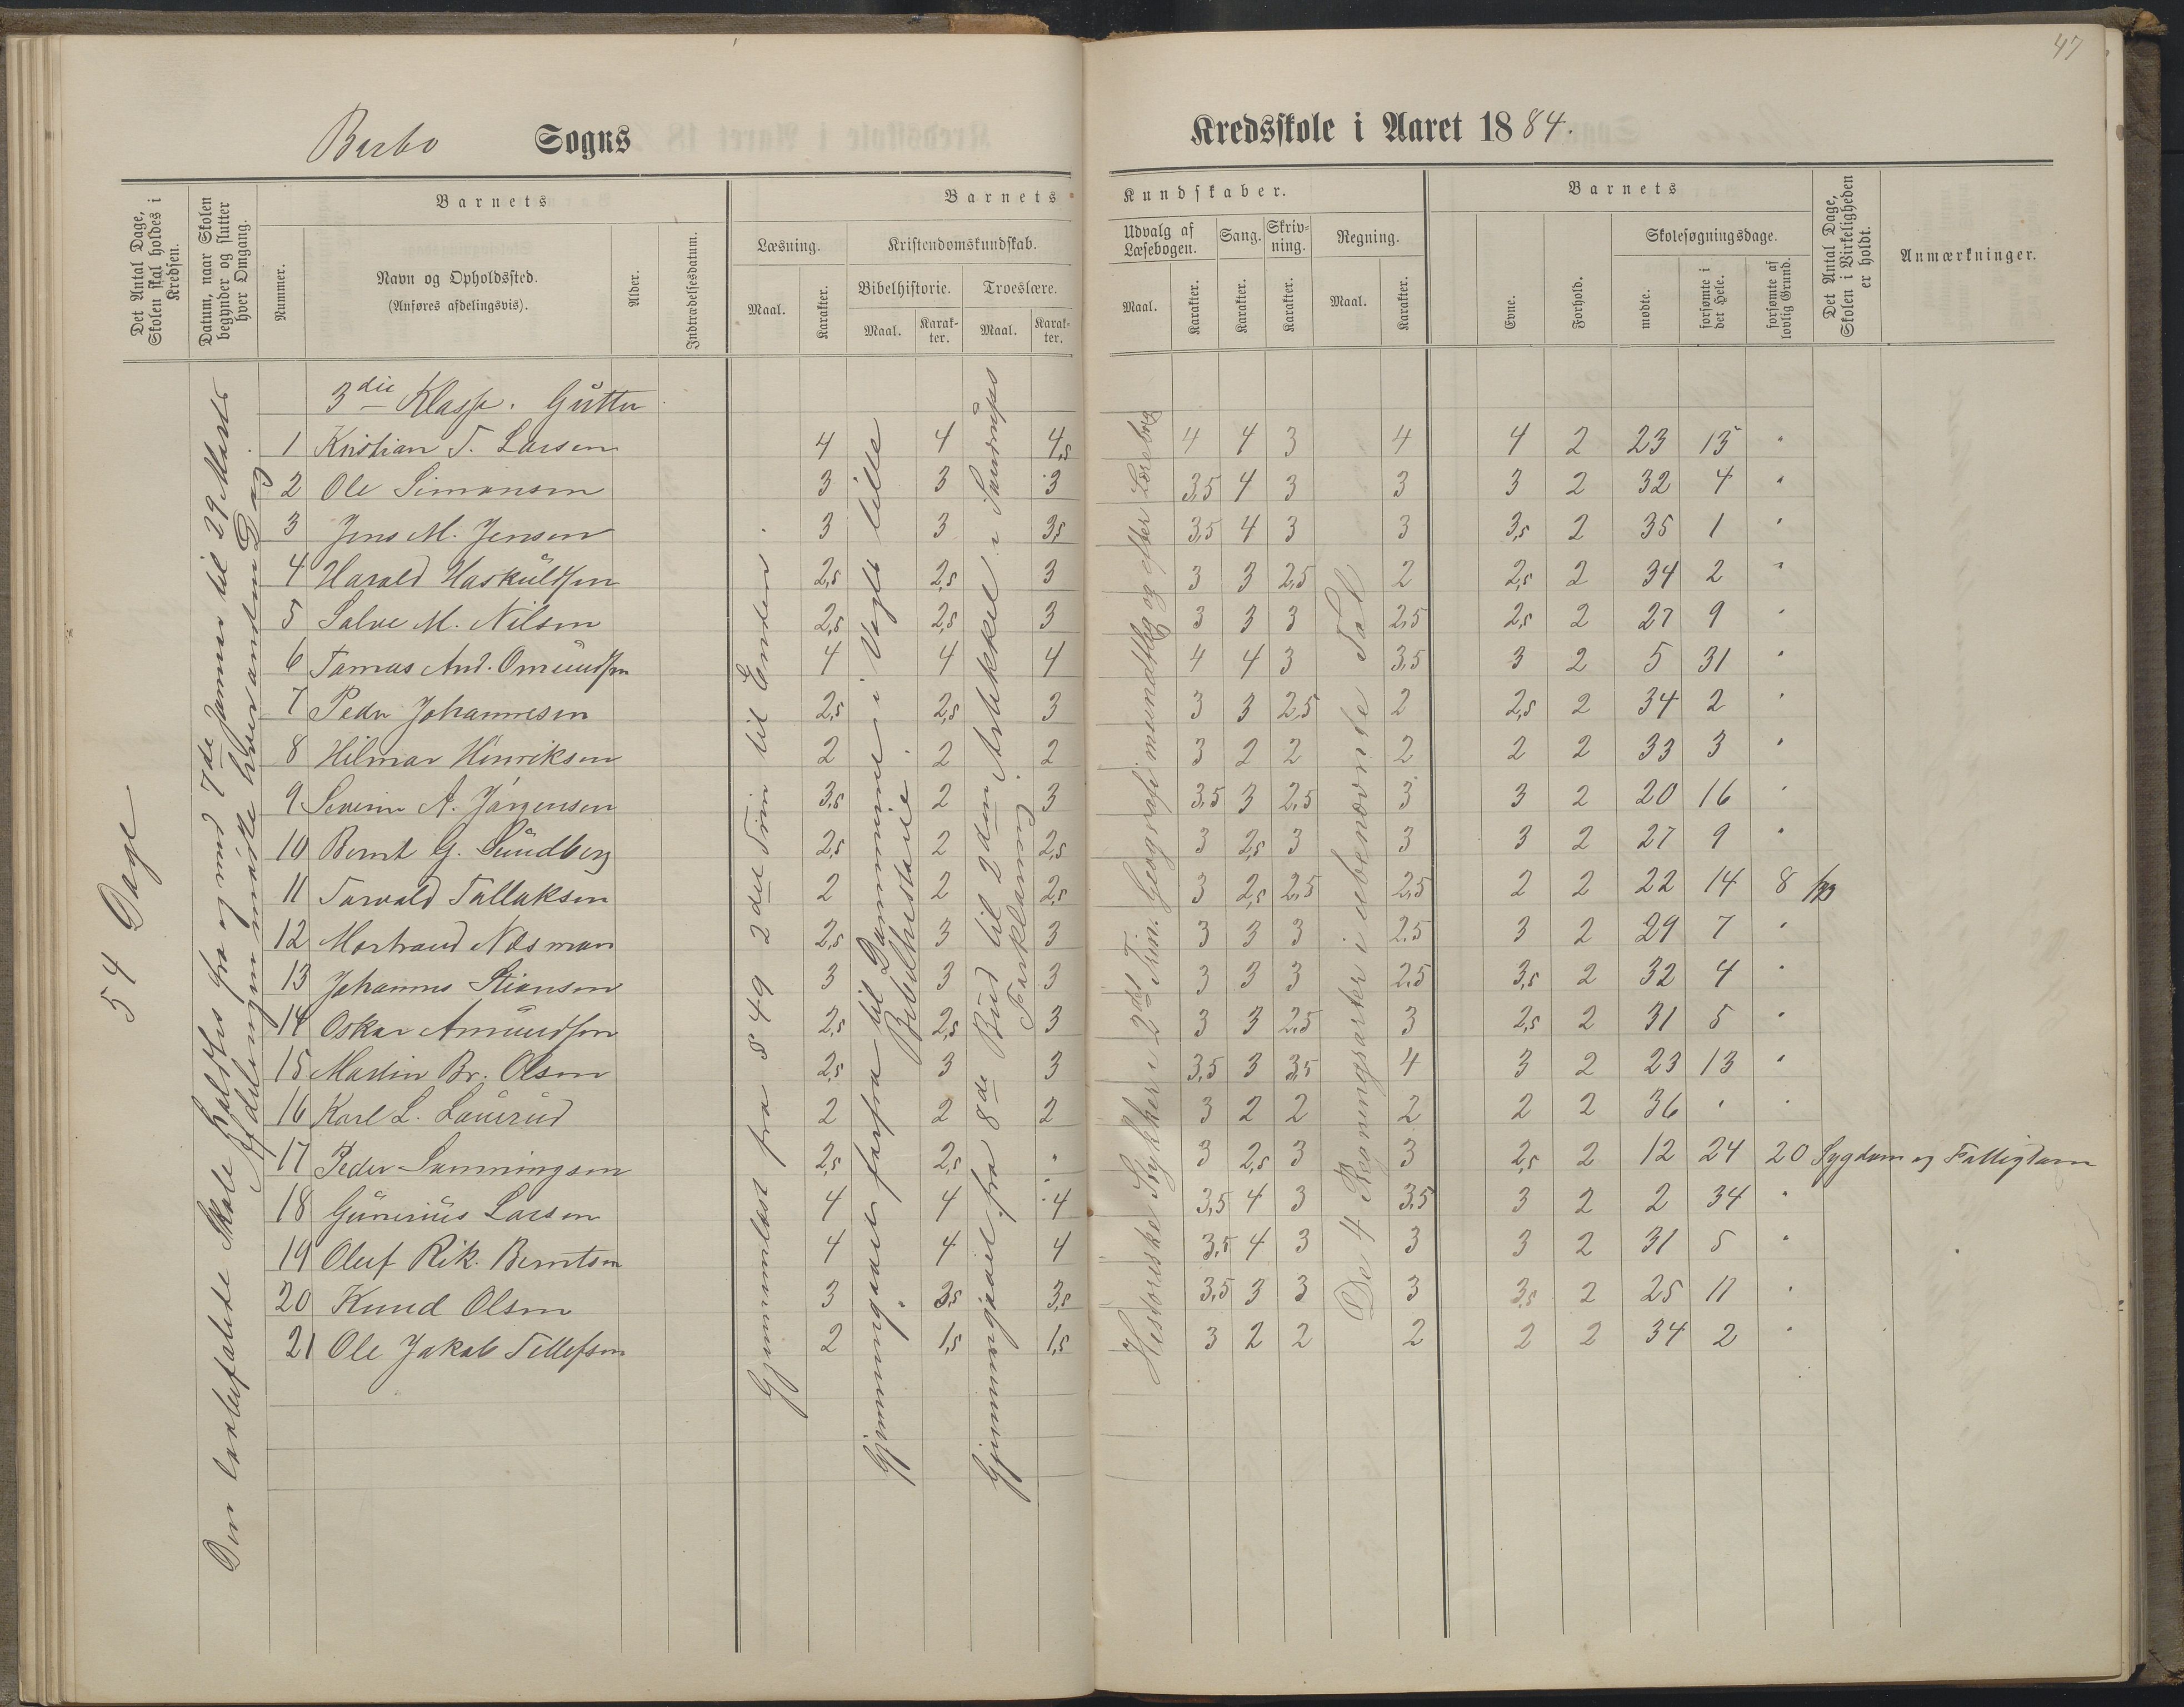 47
Barbo Sogns
Kredsskole i Aaret 1884.
Det Antal Dage, Skolen skal holdes i Kredsen.
Datum, naar Skolen begynder og slutter hver Omgang.
Nummer.
Barnets
Navn og Opholdssted.
(Anføres afdelingsvis).
Alder.
Indtrædelsesdatum.
Barnets Kundskaber.
Læsning.
Maal.
Karakter.
Kristendomskundskab.
Bibelhistorie.
Maal.
Karakter.
Troeslære.
Maal.
Karakter.
Udvalg af Læsebogen.
Maal.
Karakter.
Sang.
Karakter.
Skrivning.
Karakter.
Regning.
Maal.
Karakter.
Barnets
Evne.
Forhold.
Skolesøgningsdage.
mødte.
forsømte i det Hele.
forsømte af lovlig Grund.
Det Antal Dage, Skolen i Virkeligheden er holdt.
Anmærkninger.
54 Dage
Skole holdtes fra og med 7de Januar til 29 Marts
Afdelingen mødte hveranden Dag.
Gjennemlæst fra § 49 2det Trin til Enden.
Gjennemgaaet forfra til Dommerne i Vogts lille Bibelhistorie.
Gjennemgaaet fra 8de Bud til 2den Artikkel i Saxdrups Forklaring
Historiske Stykker i 2det Trin. Geografi mundtlig og efter Lærebog
De 4 Regningsarter i ubenævnte Tal
3die Klasse. Gutter
1 Kristian T. Larsen 4 4 4,5 4 4 3 4 4 2 23 13 "
2 Ole Simonsen 3 3 3 3,5 4 3 3 3 2 32 4 "
3 Jens M. Jensen 3 3 3,5 3,5 4 3 3 3,5 2 35 1 "
4 Harald Haskuldsen 2,5 2,5 3 3 3 2,5 2 2,5 2 34 2 "
5 Salve M. Nilsen 2,5 2,5 3 3 3 3 2,5 2,5 2 27 9 "
6 Tomas And. Omundsen 4 4 4 4 4 3 3,5 3 2 5 31 "
7 Peder Johannesen 2,5 2,5 3 3 3 2,5 2 2,5 2 34 2 "
8 Hilmar Hinriksen 2 2 2 3 2 2 2 2 2 33 3 "
9 Severin A. Jørgensen 3,5 2 3 3,5 3 2,5 3 3 2 20 16 "
10 Bernt G. Sundberg 2,5 2 2,5 3 2,5 3 3 3 2 27 9 "
11 Torvald Tallaksen 2 2 2,5 3 2,5 2,5 2,5 2 2 22 14 8
12 Næsman 2,5 3 3 3 3 3 2,5 3 2 29 7 "
13 Johannes Stiansen 3 3 3 3 3 3 2,5 3,5 2 32 4 "
14 Oskar Amundsen 2,5 2,5 3 3 3 2,5 3 2,5 2 31 5 "
15 Martin Br. Olsen 2,5 3 3 3,5 3 3,5 4 3 2 23 13 "
16 Karl L. Laurud 2 2 2 3 2 2 2 2 2 36 " "
17 Peder Sunningsen 2,5 2,5 " 3 2,5 3 3 2,5 2 12 24 20 Sygdom og Fattigdom
18 Gunerius Larsen 4 4 4 3,5 4 3 3,5 3 2 2 34 "
19 Oluf Rik. Berntsen 4 4 4 3,5 4 3 3 3 2 31 5 "
20 Knud Olsen 3 3,5 3,5 3,5 3 3 3 3,5 2 25 11 "
21 Ole Jakob Tellefsen 2 1,5 1,5 3 2 2 2 2 2 34 2 "